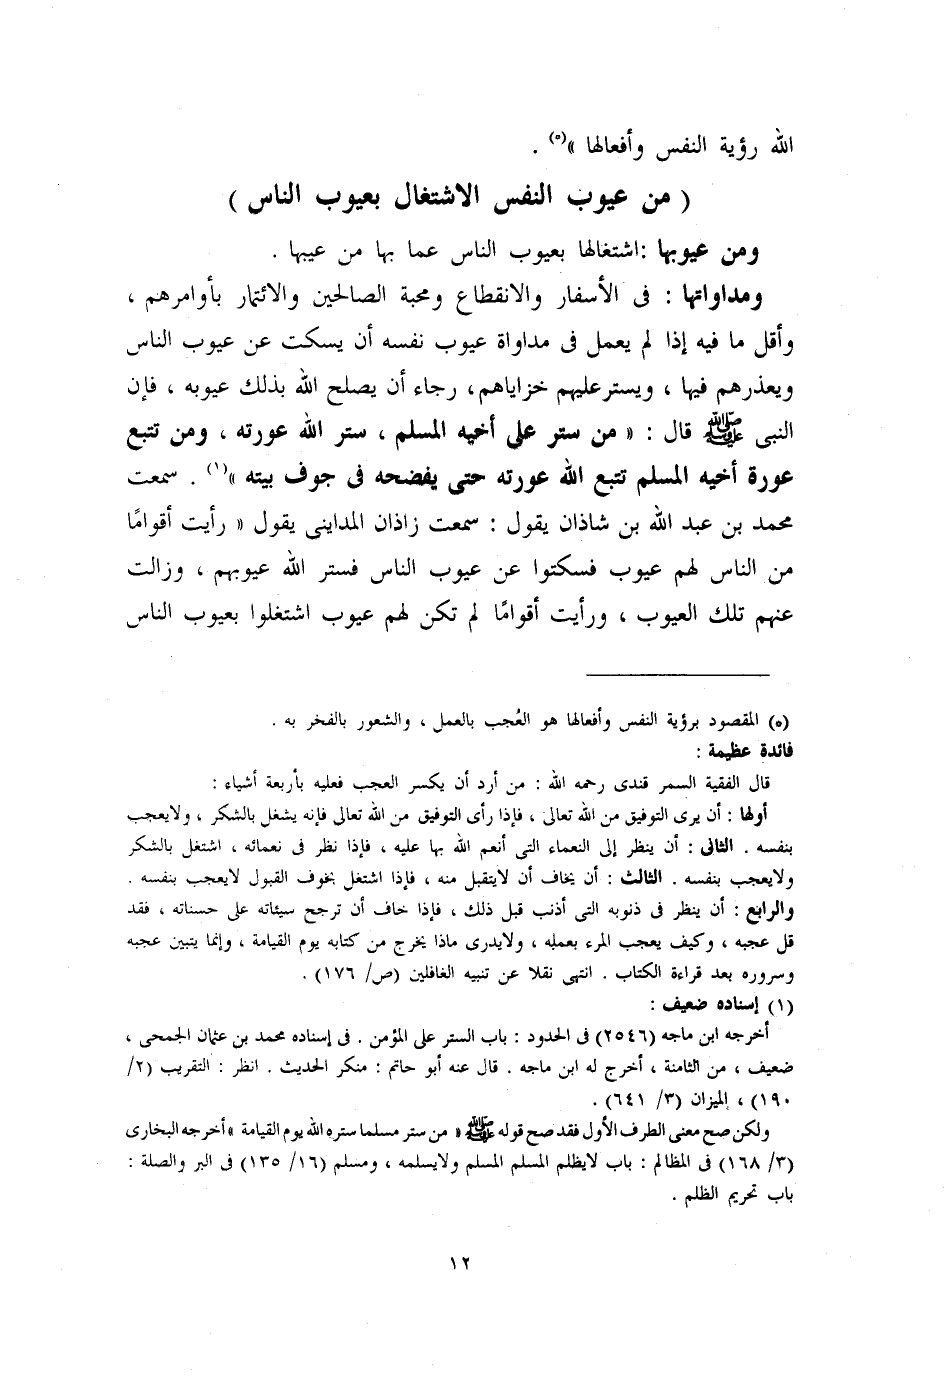 الله رؤية النفس وأفعالها »(٥) .
( من عيوب النفس الاشتغال بعيوب الناس )
ومن عيوبها :اشتغالها بعيوب الناس عما بها من عيبها .
ومداواتها : فى الأسفار والانقطاع ومحبة الصالحين والائتمار بأوامرهم ،
وأقل ما فيه إذا لم يعمل فى مداواة عيوب نفسه أن يسكت عن عيوب الناس
ويعذرهم فيها ، ويسترعليهم خزاياهم، رجاء أن يصلح الله بذلك عيوبه ، فإن
النبى ﷺ قال : « من ستر على أخيه المسلم ، ستر الله عورته ، ومن تتبع
عورة أخيه المسلم تتبع الله عورته حتى يفضحه فى جوف بيته »(١) . سمعت
محمد بن عبد الله بن شاذان يقول : سمعت زاذان المداينى يقول « رأيت أقوامًا
من الناس لهم عيوب فسكتوا عن عيوب الناس فستر الله عيوبهم ، وزالت
عنهم تلك العيوب ، ورأيت أقوامًا لم تكن لهم عيوب اشتغلوا بعيوب الناس
(٥) المقصود برؤية النفس وأفعالها هو العُجب بالعمل ، والشعور بالفخر به .
فائدة عظيمة :
قال الفقية السمر قندى رحمه الله : من أرد أن يكسر العجب فعليه بأربعة أشياء :
أولها : أن يرى التوفيق من الله تعالى ، فإذا رأى التوفيق من الله تعالى فإنه يشغل بالشكر ، ولايعجب
بنفسه . الثانى : أن ينظر إلى النعماء التى أنعم الله بها عليه ، فإذا نظر فى نعمائه ، اشتغل بالشكر
ولايعجب بنفسه . الثالث : أن يخاف أن لايتقبل منه ، فإذا اشتغل بخوف القبول لايعجب بنفسه .
والرابع : أن ينظر فى ذنوبه التى أذنب قبل ذلك ، فإذا خاف أن ترجح سيئاته على حسناته ، فقد
قل عجبه ، وكيف يعجب المرء بعمله ، ولايدرى ماذا يخرج من كتابه يوم القيامة ، وإنما يتبين عجبه
وسروره بعد قراءة الكتاب . انتهى نقلا عن تنبيه الغافلين (ص/ ١٧٦) .
(١) إسناده ضعيف :
أخرجه ابن ماجه (٢٥٤٦) فى الحدود : باب الستر على المؤمن . فى إسناده محمد بن عثمان الجمحى ،
ضعيف ، من الثامنة ، أخرج له ابن ماجه . قال عنه أبو حاتم : منكر الحديث . انظر : التقريب (٢/
١٩٠) ، الميزان (٣/ ٦٤١) .
ولكن صح معنى الطرف الأول فقد صح قوله ﷺ « من ستر مسلما ستره الله يوم القيامة »أخرجه البخارى
(٣/ ١٦٨) فى المظالم : باب لايظلم المسلم المسلم ولايسلمه ، ومسلم (١٦/ ١٣٥) فى البر والصلة :
باب تحريم الظلم .
١٢